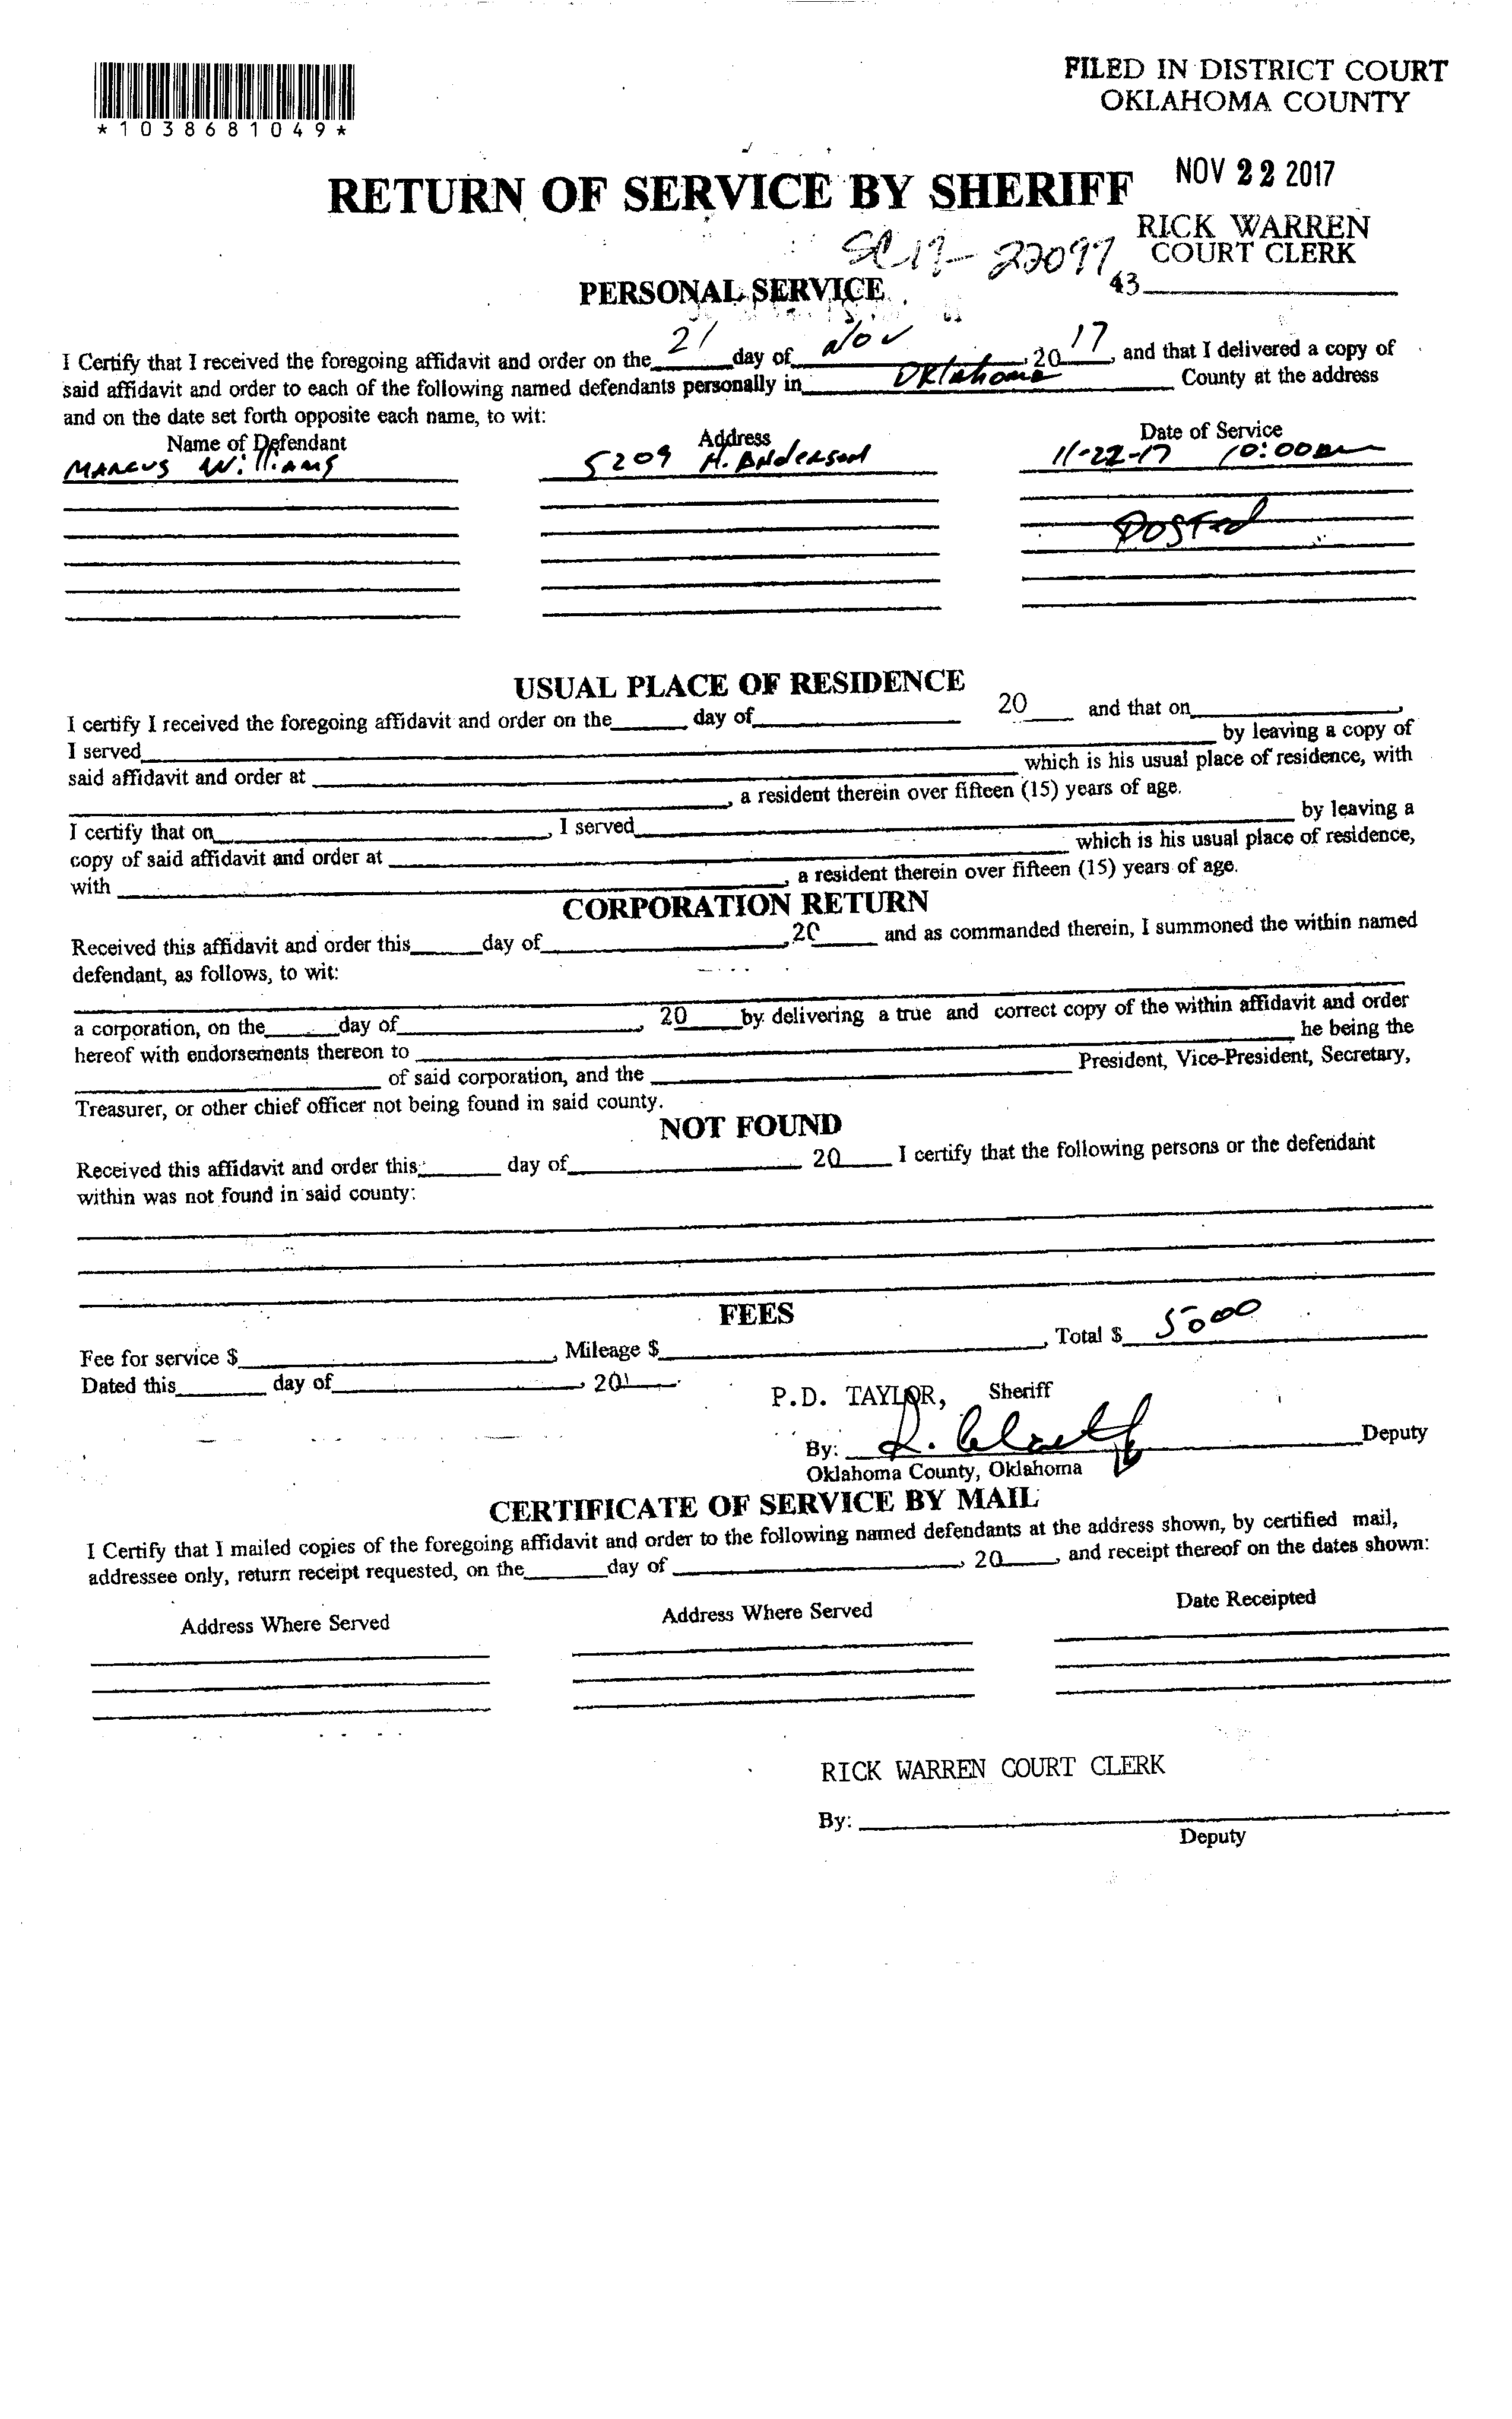 *1038681049*
FILED IN DISTRICT COURT
OKLAHOMA COUNTY
NOV 22 2017
RETURN OF SERVICE BY SHERIFF
RICK WARREN
COURT CLERK
SC17-22097
43
PERSONAL SERVICE
I Certify that I received the foregoing affidavit and order on the 21 day of NOV, 2017, and that I delivered a copy of
said affidavit and order to each of the following named defendants personally in Oklahoma County at the address
and on the date set forth opposite each name, to wit:
Name of Defendant Address Date of Service
MARCUS Williams 5209 N. Anderson 11-22-17 10:00am
Posted
USUAL PLACE OF RESIDENCE
I certify I received the foregoing affidavit and order on the ____ day of ____ 20__ and that on ____,
I served ____ by leaving a copy of
said affidavit and order at ____ which is his usual place of residence, with
____, a resident therein over fifteen (15) years of age.
I certify that on ____, I served ____ by leaving a
copy of said affidavit and order at ____ which is his usual place of residence,
with ____, a resident therein over fifteen (15) years of age.
CORPORATION RETURN
Received this affidavit and order this ____ day of ____, 20__ and as commanded therein, I summoned the within named
defendant, as follows, to wit:
a corporation, on the ____ day of ____, 20__ by delivering a true and correct copy of the within affidavit and order
hereof with endorsements thereon to ____ he being the
____ of said corporation, and the ____ President, Vice-President, Secretary,
Treasurer, or other chief officer not being found in said county.
NOT FOUND
Received this affidavit and order this ____ day of ____ 20__ I certify that the following persons or the defendant
within was not found in said county:
FEES
Fee for service $____, Mileage $____, Total $ 5000
Dated this ____ day of ____, 20__.
P.D. TAYLOR, Sheriff
By: ____ Deputy
Oklahoma County, Oklahoma
CERTIFICATE OF SERVICE BY MAIL
I Certify that I mailed copies of the foregoing affidavit and order to the following named defendants at the address shown, by certified mail,
addressee only, return receipt requested, on the ____ day of ____, 20__, and receipt thereof on the dates shown:
Address Where Served Address Where Served Date Receipted
RICK WARREN COURT CLERK
By: ____
Deputy